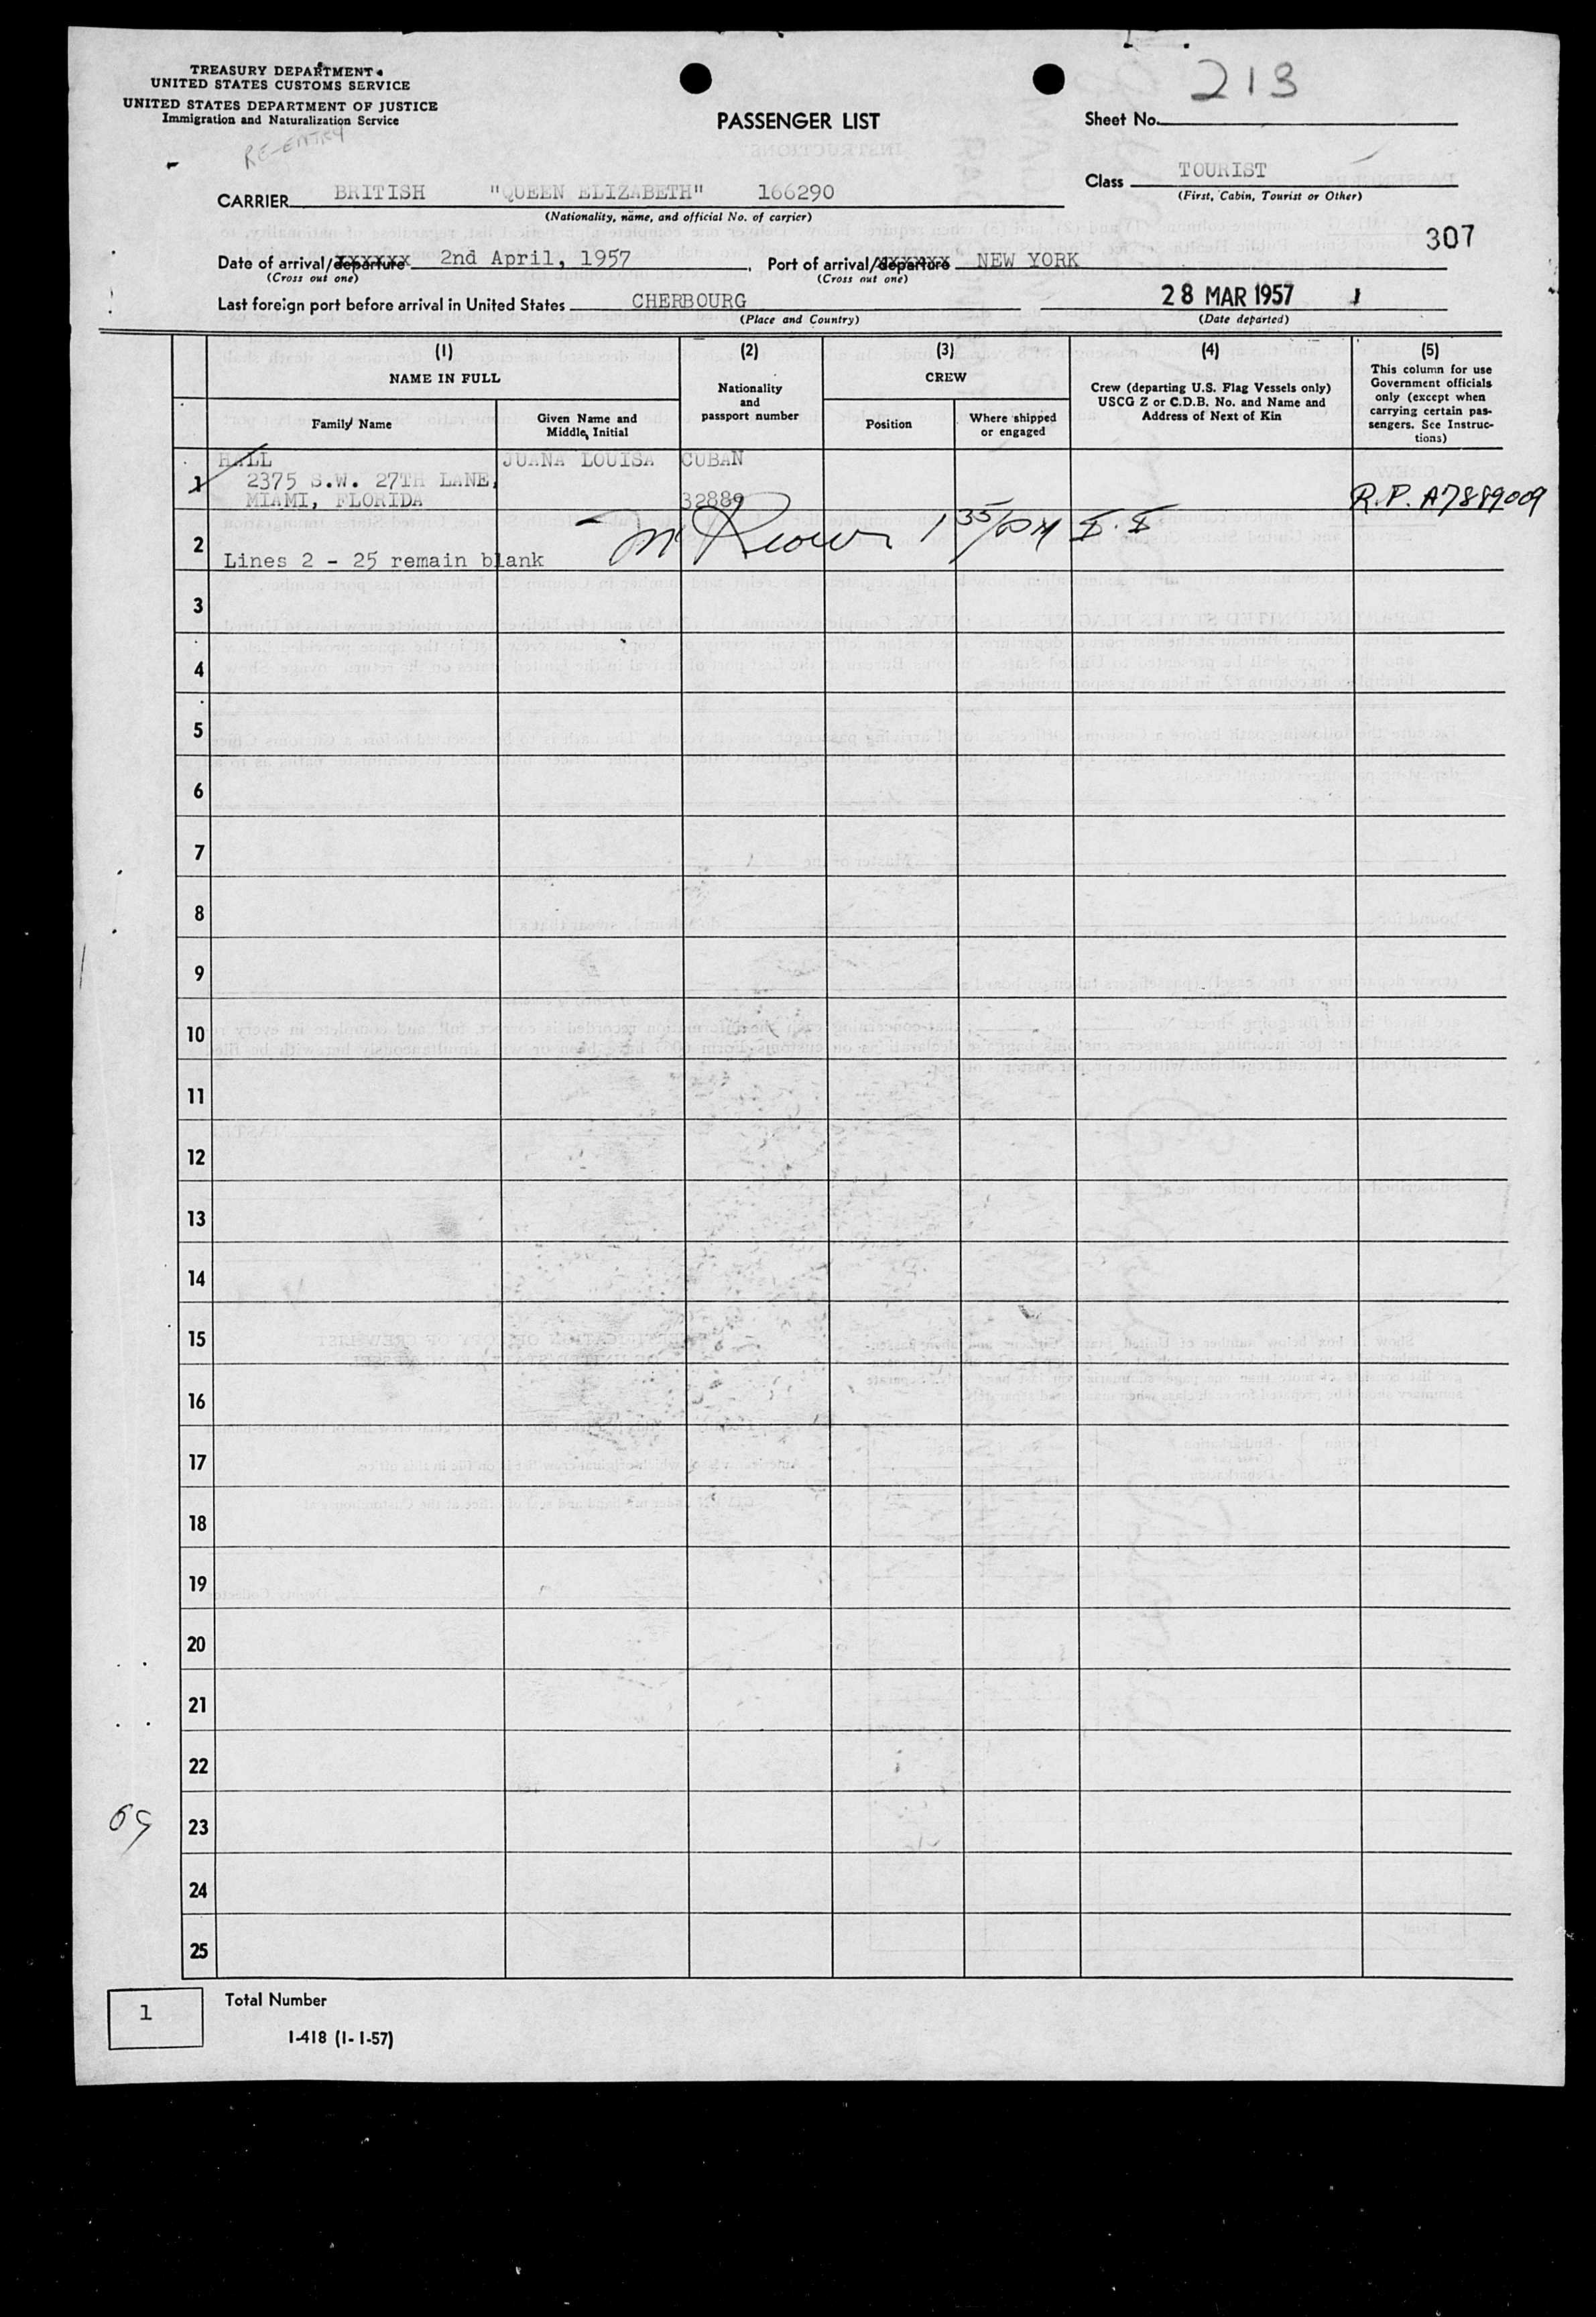 TREASURY DEPARTMENT
UNITED STATES CUSTOMS SERVICE
UNITED STATES DEPARTMENT OF JUSTICE
Immigration and Naturalization Service
RE-ENTRY
PASSENGER LIST
213
Sheet No.
CARRIER BRITISH "QUEEN ELIZABETH" 166290
(Nationality, name, and official No. of carrier)
Class TOURIST
(First, Cabin, Tourist or Other)
307
Date of arrival/departure 2nd April, 1957. Port of arrival/departure NEW YORK
(Cross out one) (Cross out one)
Last foreign port before arrival in United States CHERBOURG 28 MAR 1957
(Place and Country) (Date departed)
(1) (2) (3) (4) (5)
NAME IN FULL
Family Name
Given Name and
Middle Initial
Nationality
and
passport number
CREW
Position
Where shipped
or engaged
Crew (departing U.S. Flag Vessels only)
USCG Z or C.D.B. No. and Name and
Address of Next of Kin
This column for use
Government officials
only (except when
carrying certain pas-
sengers. See Instruc-
tions)
HALL JUANA LOUISA CUBAN
1 2375 S.W. 27TH LANE,
MIAMI, FLORIDA 32889 R.P. A7889009
2 1 35/PM
Lines 2 - 25 remain blank
3
4
5
6
7
8
9
10
11
12
13
14
15
16
17
18
19
20
21
22
23
24
25
1 Total Number
I-418 (1-1-57)